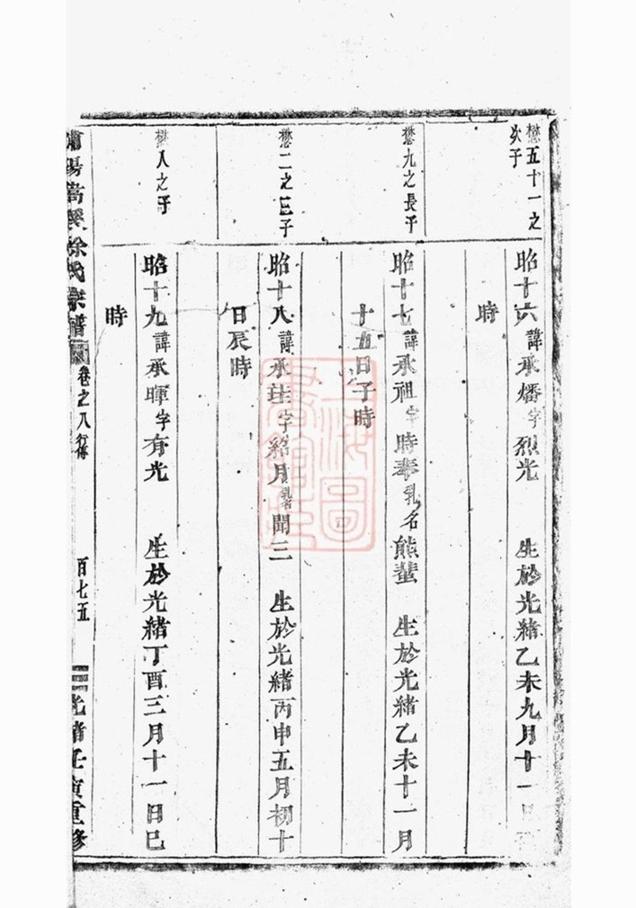 懋五十一之
次子
昭十六諱承燔字烈光 生於光緒乙未九月十一日
時
懋九之長子
昭十七諱承祖字時奉乳名熊蜚 生於光緒乙未十一月
十五日子時
懋二之三子
昭十八諱承珪字紹月乳名聞三 生於光緒丙申五月初十
日辰時
懋人之子
昭十九諱承暉字有光 生於光緒丁酉三月十一日巳
時
陽嵩溪徐氏宗譜 卷之八行傳 百七五 光緒壬寅重修